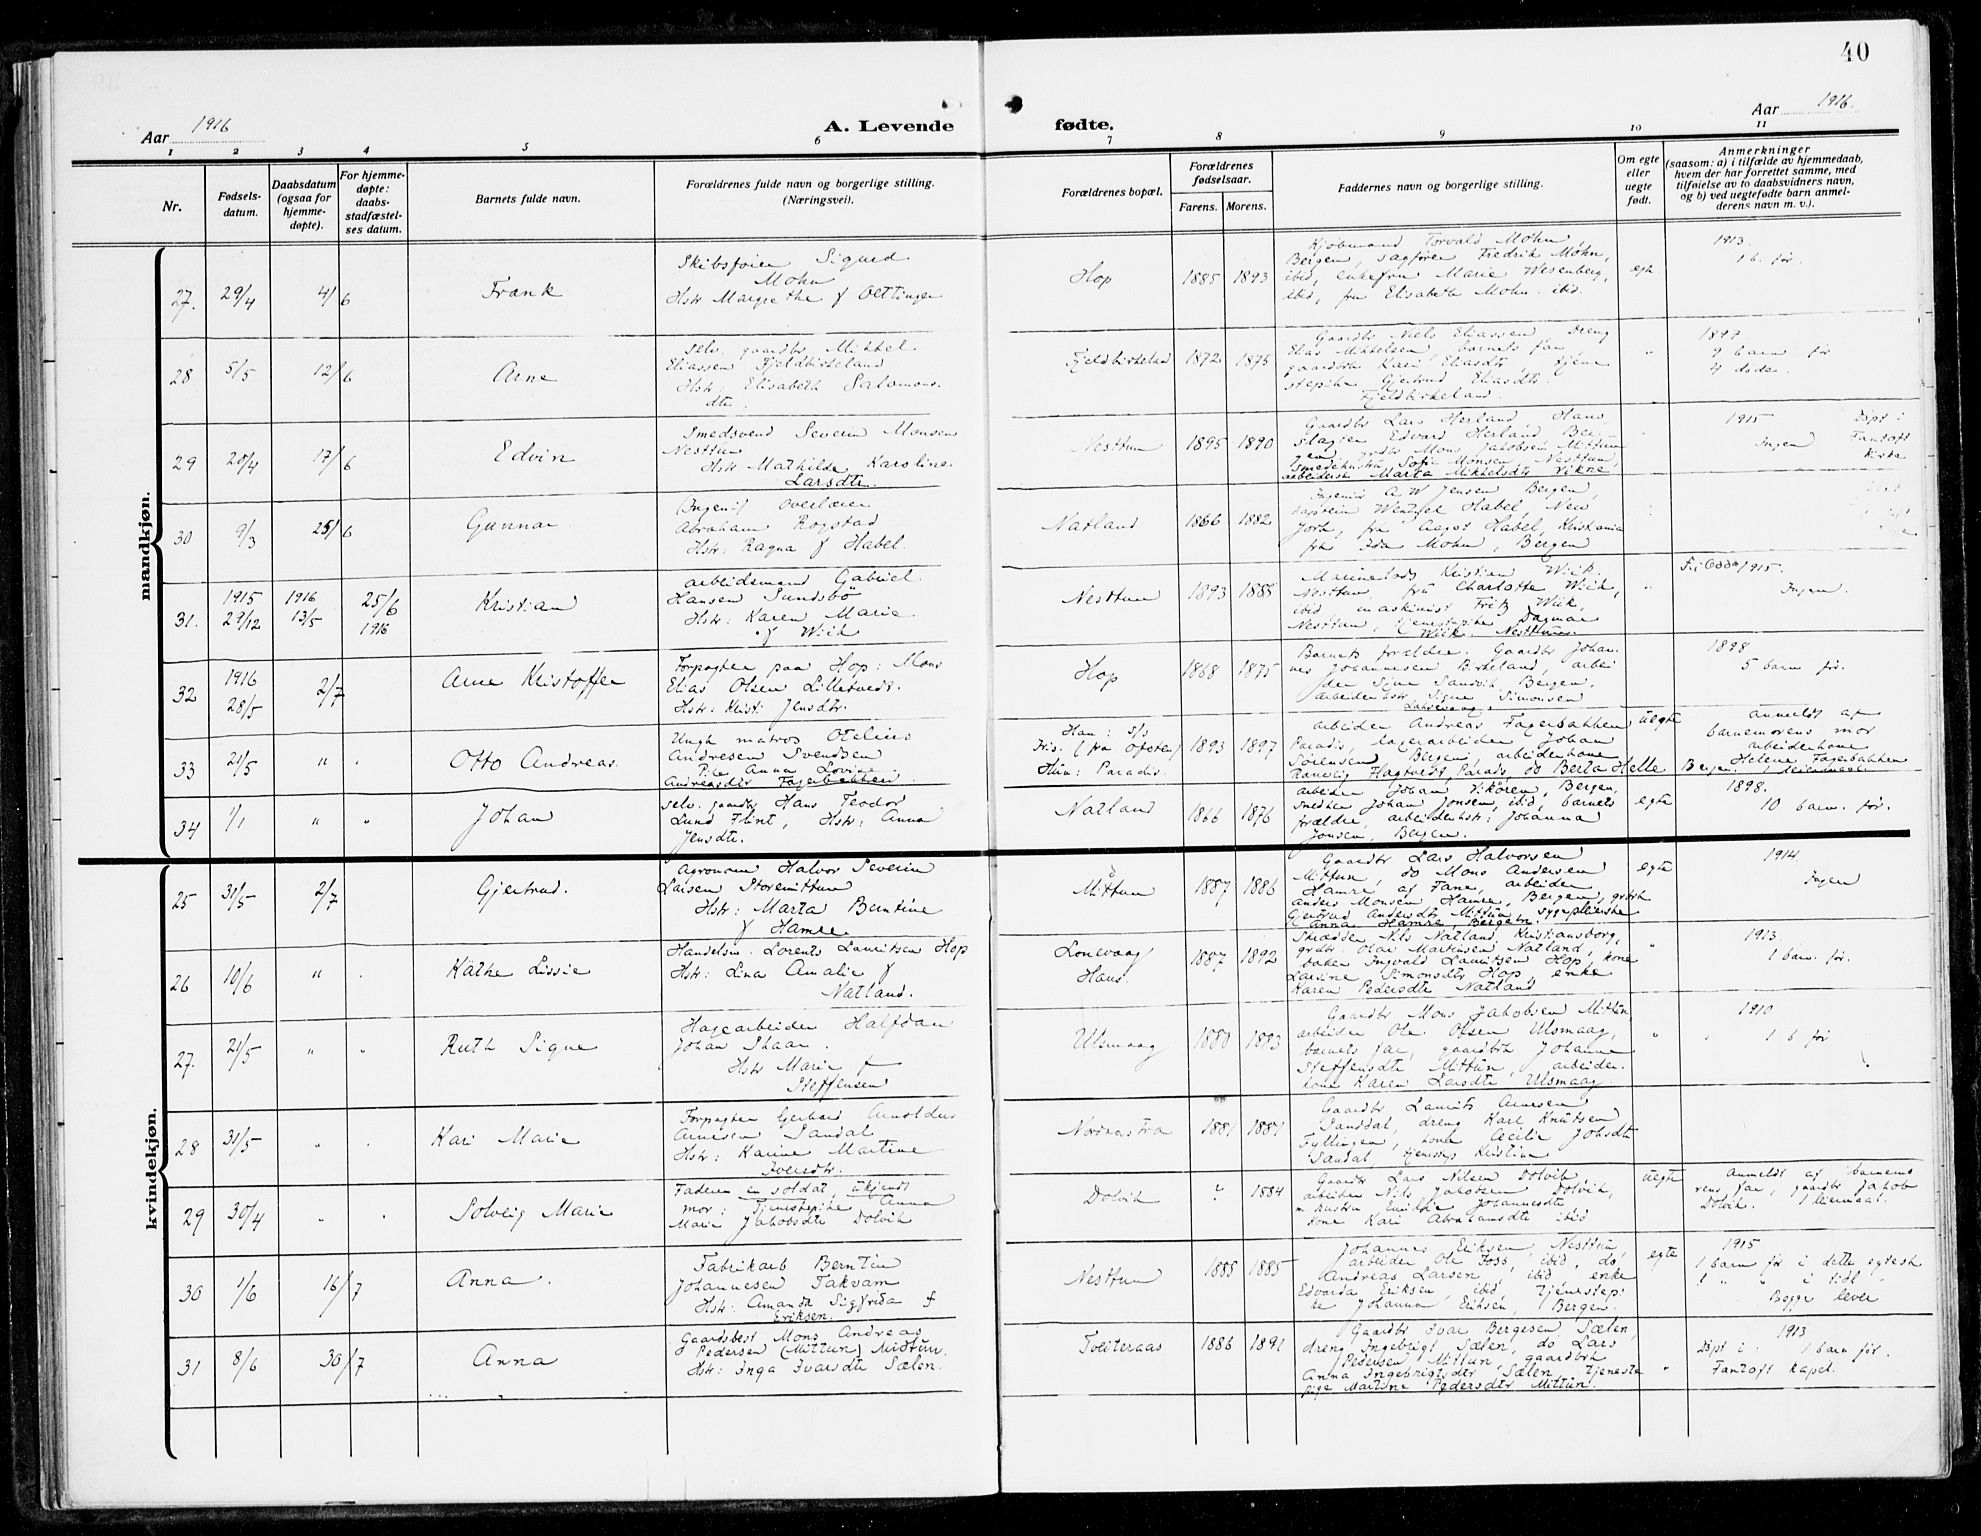 40
Aar 1916
A. Levende
fødte.
Aar 1916.
1 2 3 4 5 6 7 8 9 10 11
Nr.
Fødsels-
datum.
Daabsdatum
(ogsaa for
hjemme-
døpte).
For hjemme-
døpte:
daabs-
stadfæstel-
ses datum.
Barnets fulde navn.
Forældrenes fulde navn og borgerlige stilling.
(Næringsvei).
Forældrenes bopæl.
Forældrenes
fødselsaar.
Farens. Morens.
Faddernes navn og borgerlige stilling.
Om egte
eller
uegte
født.
Anmerkninger
(saasom: a) i tilfælde av hjemmedaab,
hvem der har forrettet samme, med
tilføielse av to daabsvidners navn,
og b) ved uegtefødte barn anmel-
derens navn m. v.).
mandkjøn.
27. 29/4 4/6 Frank
Skibsfører Sigurd
Mohn
Hstr Margrethe f Oettinger
Hop 1885 1893
Kjøbmand Torvald Mohn
Bergen, sagfører Fredrik Mohn,
ibid, enkefru Marie Wesenberg,
ibid, fru Elisabeth Mohn ibid.
egte
1913.
1 b. før.
28 5/5 12/6 Arne
selv. gaardbr Mikkel
Eliassen Fjeldbirkeland
Hstr: Elisabeth Salamons
dtr.
Fjeldbirkeland 1872 1875
Gaardbr Niels Eliassen, dreng
Elias Mikkelsen, barnets far
gaardbrk Kari Eliasdtr, tjene
stepike Gjertrud Eliasdtr.
Fjeldbirkeland.
"
1897
9 barn før
4 døde.
29 20/4 17/6 Edvin
Smedsvend Severin Monsen
Nesttun
Hstr Mathilde Karoline
Larsdtr.
Nesttun 1895 1890
Gaardbr Lars Herland Haus
slagter Edvard Herland Ber
gen, grdbr Mons Jakobsen Mittun
smedehustru Sofie Monsen Nesttun,
arbeiderk Marta Mikkelsdtr Vikne
1915
Ingen
Døpt i
Fantoft
kirke
30 9/3 25/6 Gunnar
(Ingeniør) Overlærer
Abraham Rogstad
Hstr: Ragna f Habel.
Natland 1866 1882
Ingeniør A W Jensen Bergen,
Wentzel Habel, New
York, frk Aagot Habel, Kristiania
frk Ida Mohn, Bergen
31. 1915 29/12 1916 13/5 25/6 1916 Kristian
Arbeidsmand Gabriel
Hansen Sundsbø
Hstr: Karen Marie
f Wiik
Nesttun 1893 1885
Kristian Wiik.
Nesttun, fru Charlotte Wiik,
ibid, maskinist Fritz Wiik,
Nesttun, tjenestepike Dagmar
Wiik. Nesttun.
"
1915.
Ingen.
32 1916 28/5 2/7 Arne Kristoffer
Forpagter paa Hop: Mons
Elias Olsen Lilletvedt.
Hstr: Kristi Jensdtr.
Hop 1868 1875
Barnets forældre. Gaardbr Johan
nes Johannesen Birkeland, arbei
der Sjur Sandvik, Bergen,
arbeiderhstr Signe Simonsen
Laksevaag.
1898
5 barn før.
33 21/5 " Otto Andreas.
Ungk matros Otelius
Andresen Svendsen
Pike Anna Lovise
Andreasdtr Fagerbakken
Han: s/s
Iris. (fra Ofoten)
Hun: Paradis. 1893 1897
arbeider Andreas Fagerbakken
Paradis, lagerarbeider Johan
Sørensen Bergen arbeiderkone
Ranveig Flagtvedt Paradis, do Berta Helle
uegte
anmeldt af
barnemorens mor
arbeiderkone
Helene Fagerbakken
Bergen. 1 leiermaal
34 1/1 " " Johan
selv. gaardbr Hans Teodor
Lund Flint, Hstr: Anna
Jensdtr.
Natland 1866 1876
arbeider Johan Vikøren, Bergen,
snedker Johan Jonsen, ibid, barnets
forældre, arbeiderhstr: Johanna
Jonsen, Bergen.
egte
1898.
10 barn. før.
kvindekjøn.
25 31/5 2/7 Gjertrud.
Agronom Halvor Severin
Larsen Storemittun
Hstr: Marta Berntine
f Hamre.
Mittun 1887 1886
Gaardbr Lars Halvorsen
Mittun, do Mons Andersen
Hamre af Fane, arbeider
Anders Monsen Hamre, Bergen, grdbrk
Gjertrud Andersdtr Mittun, sygepleierske
Anna Hamre, Bergen.
egte
1914
Ingen
26 10/6 " Käthe Lissie
Handelsm. Lorents Lauritsen Hop
Hstr: Lina Amalie f
Natland.
Lonevaag
Haus. 1887 1892
Skrædder Nils Natland, Kristiansborg,
grdbr Olai Martinsen Natland,
baker Ingvald Lauritsen Hop, kone
Larsine Simonsdtr Hop, enke
Karen Pedersdtr Natland
"
1913.
1 barn. før.
27. 21/5 " " Ruth Signe
Hagearbeider Halfdan
Johan Skaar.
Hstr Marie f
Steffensen
Ulsmaag 1880 1883
Gaardbr Mons Jakobsen Mittun
arbeider Ole Olsen Ulsmaag,
barnets far, gaardbrk Johanne
Steffensdtr Mittun, arbeider.
kone Karen Larsdtr Ulsmaag.
"
1910
1 b før
28 31/5 " Kari Marie
Forpagter Gerhard Arnoldus
Arnesen Sandal
Hstr: Karine Martine
Iversdtr.
Nordaas Fra 1881 1887
Gaardbr Laurits Arnesen
Sandal, dreng Karl Knutsen
Fyllingen, kone Cecilie Johsdtr
Sandal, tjenestep Kristine
29 30/4 " Solveig Marie
Faderen en soldat, ukjendt
mor: Tjenestepike Anna
Marie Jakobsdtr Dolvik
Dolvik ? 1884
Gaardbr Lars Nilsen Dolvik
arbeider Nils Jakobsen Dolvik,
m hustru Emilie Johannesdtr
kone Kari Abrahamsdtr ibid
uegte
Anmeldt af barnemo
rens far, gaardbr Jakob
Dolvik. 1 leiermaal.
30 1/6 16/7 Anna.
Fabrikarb Berntin
Johannesen Takvam
Hstr: Amanda Sigfrida f
Eriksen.
Nesttun 1885 1885
Johannes Eriksen, Nesttun,
arbeider Ole Foss, ibid, do.
Andreas Larsen, ibid enke
Edvarda Eriksen, ibid, tjenestepi
ke Johanna Eriksen, Bergen.
egte
1915
1 barn før i dette egtesk
1 " " i tidl "
Begge lever
31 8/6 30/7 Anna
Gaardsbest Mons Andreas
Pedersen (Mittun) Midtun.
Hstr: Inga Ivarsdtr Sælen.
Tveiteraas 1886 1891
Gaardbr Ivar Bergesen Sælen,
dreng Ingebrigt Sælen, do Lars
Pedersen Mittun, gaardbrk
Anna Ingebrigtsdtr Sælen tjeneste
pige Martine Pedersdtr Mittun.
"
1913
Døpt i 1 barn før.
Fantoft kapel.